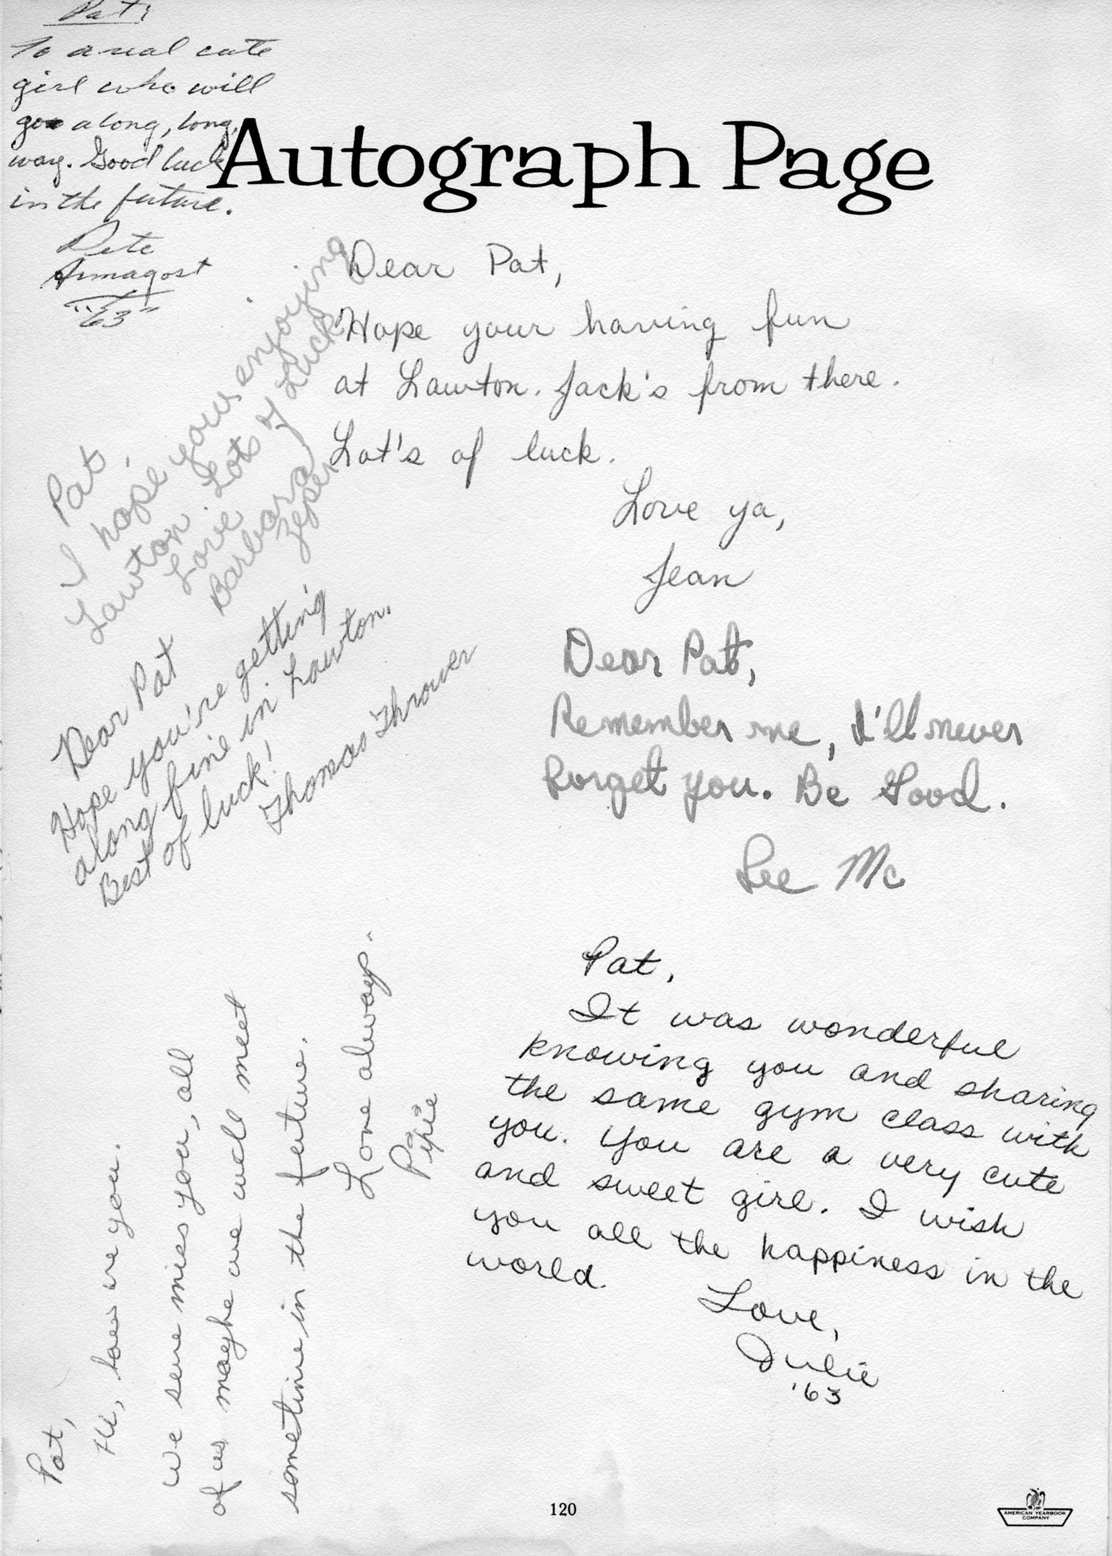 Pat,
To a real cute
girl who will
go a long, long,
way. Good luck
in the future.
Pete
Armagost
"63"
Autograph Page
Dear Pat,
Hope your having fun
at Lawton. Jack's from there.
Lot's of luck.
Love ya,
Jean
Pat,
I hope yours enjoying
Lawton. Lots of Luck
Love
Barbara
Dear Pat
Hope you're getting
along fine in Lawton.
Best of luck!
Thomas Thrower
Dear Pat,
Remember me, I'll never
Forget you. Be Good.
Lee Mc
Pat,
Hi, how are you.
We sure miss you, all
of us maybe we will meet
sometime in the future.
Love always.
Pat,
It was wonderful
knowing you and sharing
the same gym class with
you. You are a very cute
and sweet girl. I wish
you all the happiness in the
world.
Love,
Julie
'63
120
AMERICAN YEARBOOK
COMPANY